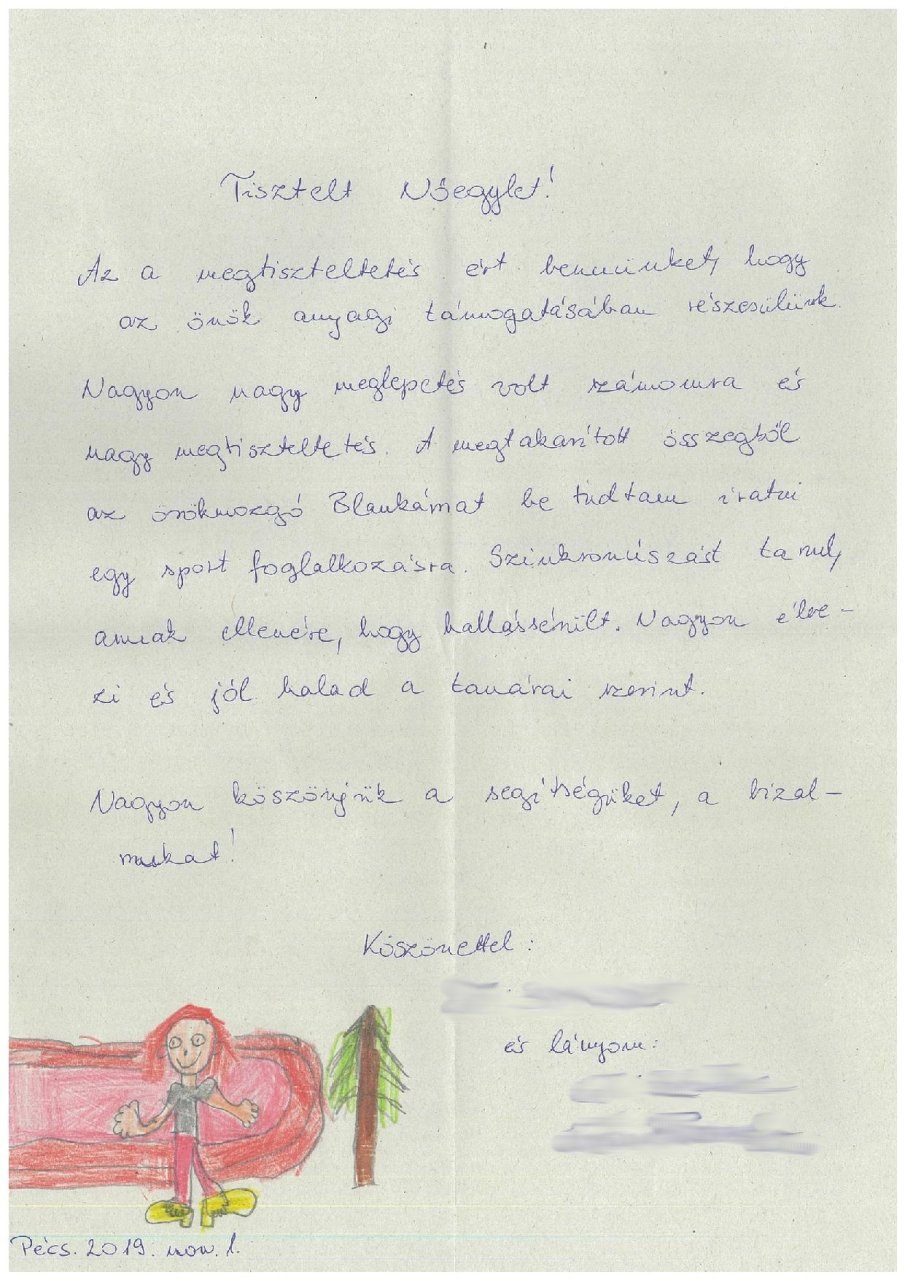 Tisztelt Nőegylet!
Az a megtiszteltetés ért bennünket, hogy
az önök anyagi támogatásában részesülünk.
Nagyon nagy meglepetés volt számomra és
nagy megtiszteltetés. A megtakarított összegből
az örökmozgó Blankámat be tudtam iratni
egy sport foglalkozásra. Szinkronúszást tanul,
annak ellenére, hogy hallássérült. Nagyon élve-
zi és jól halad a tanárai szerint.
Nagyon köszönjük a segítségüket, a bizal-
mukat!
Köszönettel:
és lányom:
Pécs. 2019. nov. 1.